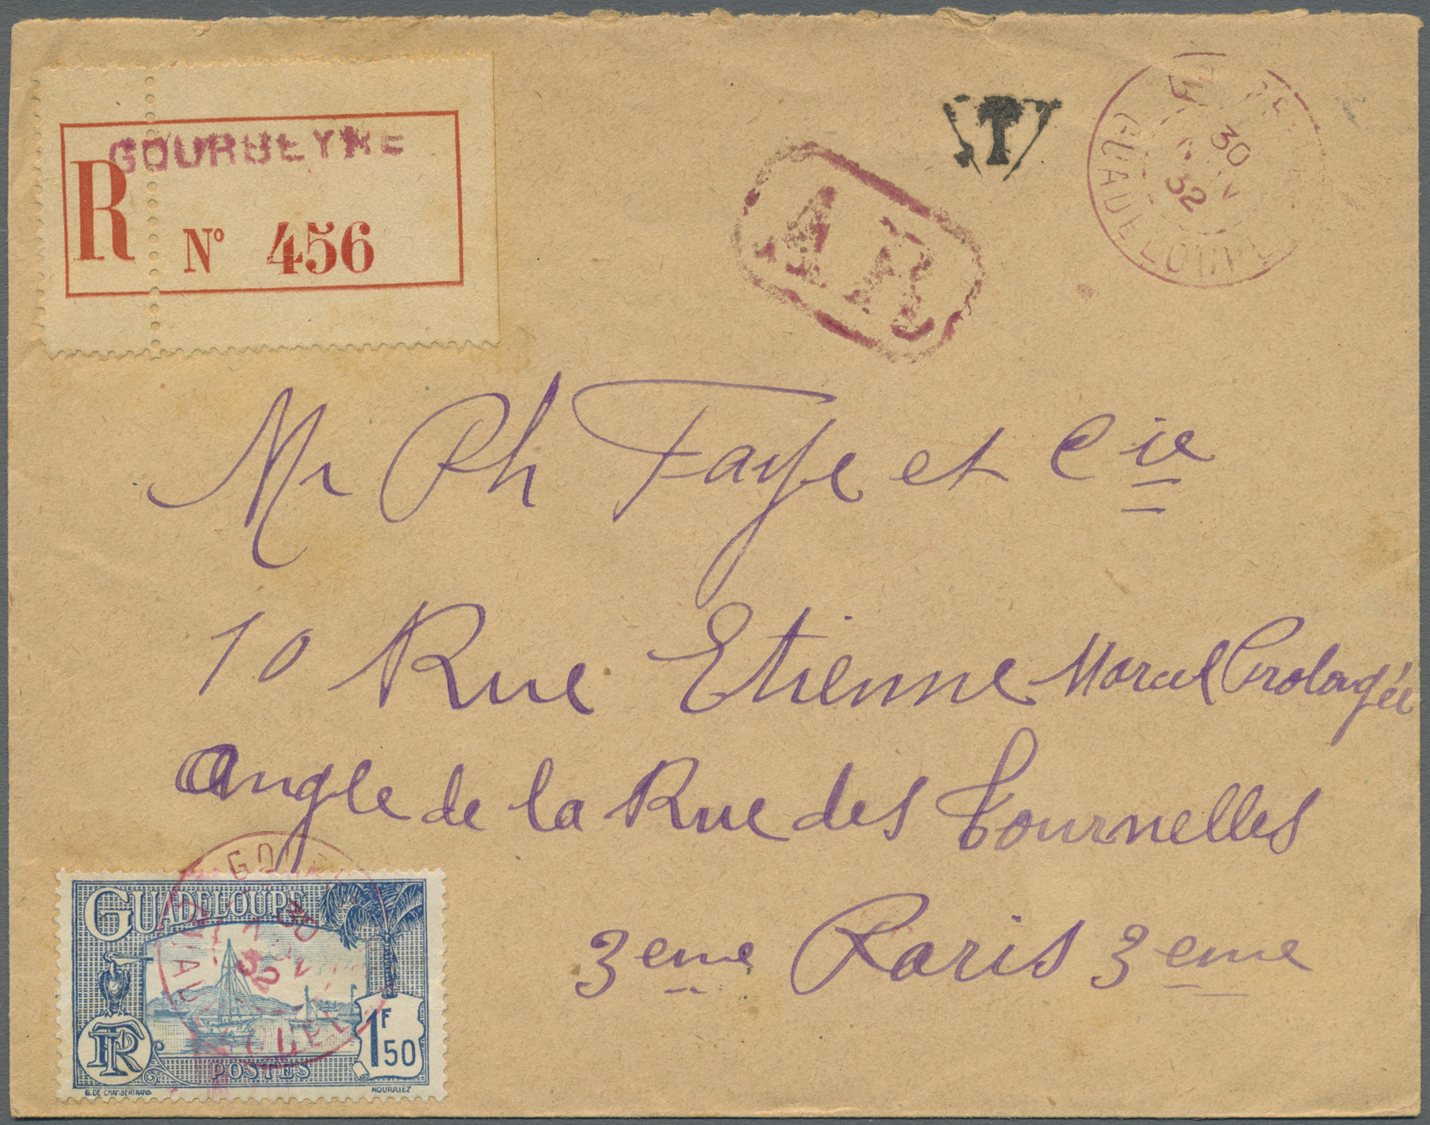 GOURBEYRE
R
N° 456
AR
T
30
32
GUADELOUPE
Mr Ph Faye et Cie
10 Rue Etienne Marcel Prolongée
Angle de la Rue des Tournelles
3eme Paris 3eme
GUADELOUPE
30
32
RF
1F50
POSTES
G. DE CHAMBERTRAND
HOURRIEZ